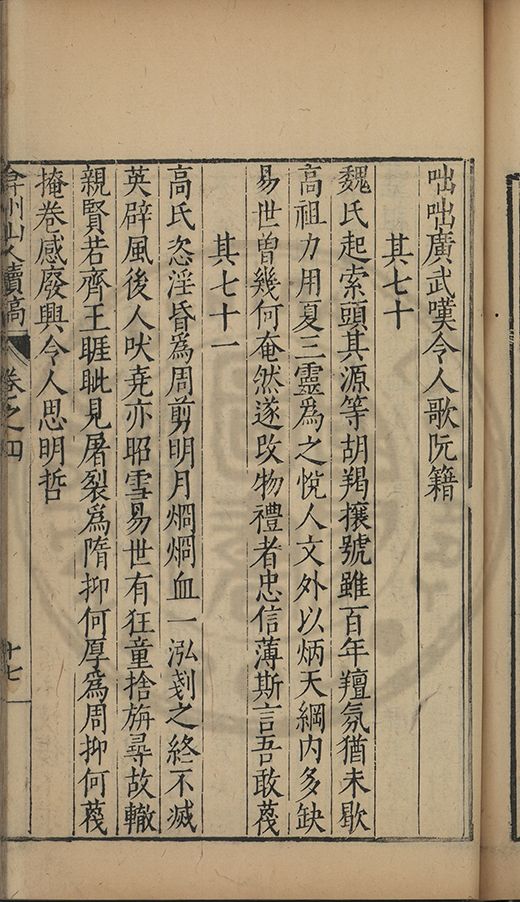 咄咄廣武嘆令人歌阮籍
其七十
魏氏起索頭其源等胡羯攘號雖百年羶氛猶未歇
高祖力用夏三靈爲之悅人文外以炳天綱内多缺
易世曾幾何奄然遂改物禮者忠信薄斯言吾敢蔑
其七十一
高氏恣淫昏爲周剪明月烱烱血一泓剗之終不滅
英辟風後人吠堯亦昭雪易世有狂童捨旃尋故轍
親賢若齊王睚眦見屠裂爲隋抑何厚爲周抑何蔑
掩卷感廢興令人思明哲
弇州山人續稿
卷之四
十七